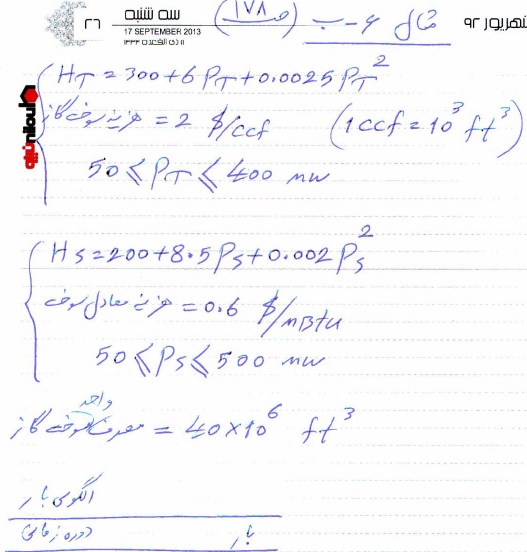 شهریور ۹۲
مثال ۶-ب (ص ۱۷۸)
سه شنبه ۲۶
17 SEPTEMBER 2013
۱۱ ذی القعده ۱۴۳۴
H_T = 300 + 6 P_T + 0.0025 P_T^2
هزینه سوخت گاز = 2 $/ccf (1 ccf = 10^3 ft^3)
50 ≤ P_T ≤ 400 MW
H_S = 200 + 8.5 P_S + 0.002 P_S^2
هزینه معادل سوخت = 0.6 $/MBtu
50 ≤ P_S ≤ 500 MW
واحد
مصرف سوخت گاز = 40×10^6 ft^3
الگوی بار
بار (دوره زمانی)